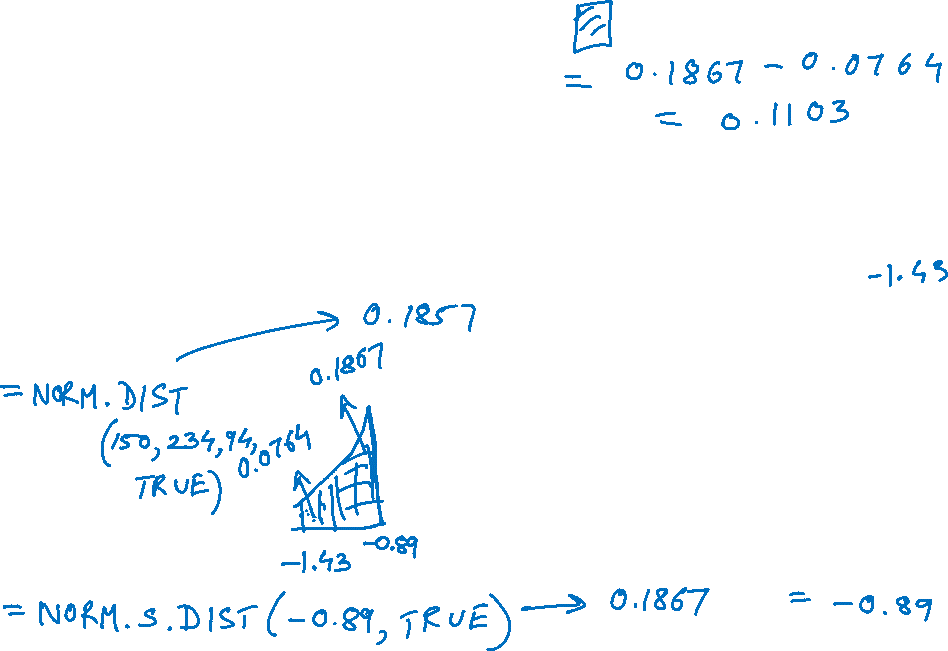 = 0.1867 - 0.0764
= 0.1103
-1.43
0.1857
0.1867
= NORM.DIST
(150, 234, 94,
0.0764
TRUE)
-1.43
-0.89
= NORM.S.DIST(-0.89, TRUE) → 0.1867
= -0.89